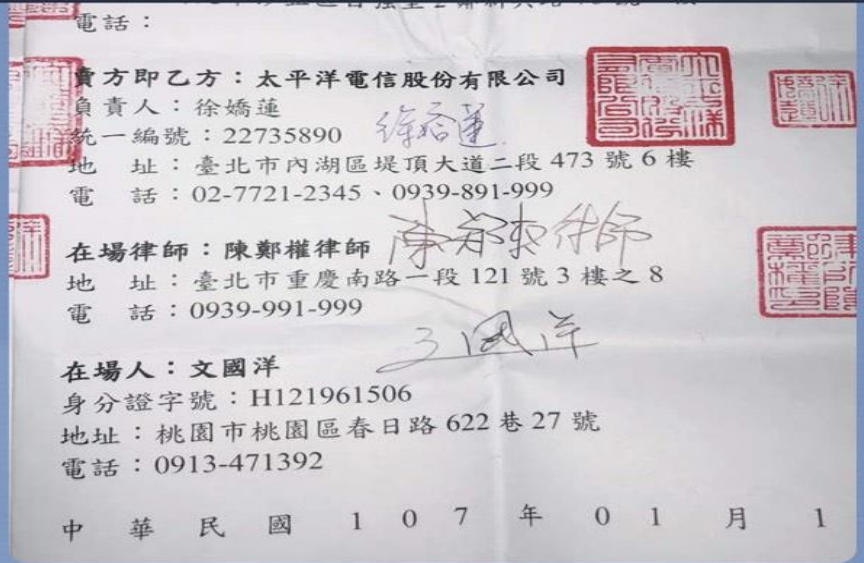 電話：
賣方即乙方：太平洋電信股份有限公司
負責人：徐嬌蓮
統一編號：22735890
地　址：臺北市內湖區堤頂大道二段 473 號 6 樓
電　話：02-7721-2345、0939-891-999
在場律師：陳鄭權律師 陳鄭權律師
地　址：臺北市重慶南路一段 121 號 3 樓之 8
電　話：0939-991-999
在場人：文國洋
身分證字號：H121961506
地址：桃園市桃園區春日路 622 巷 27 號
電話：0913-471392
中 華 民 國 1 0 7 年 0 1 月 1